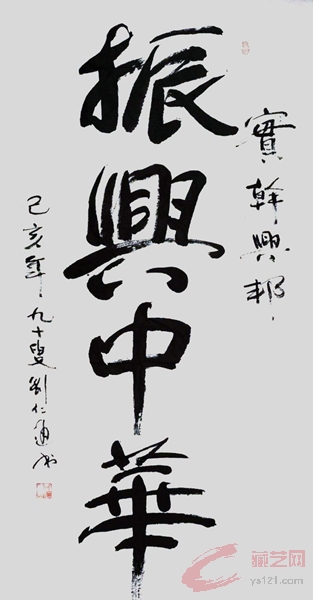 實幹興邦
振興中華
己亥年九十叟劉仁通書
藏艺网
ys121.com